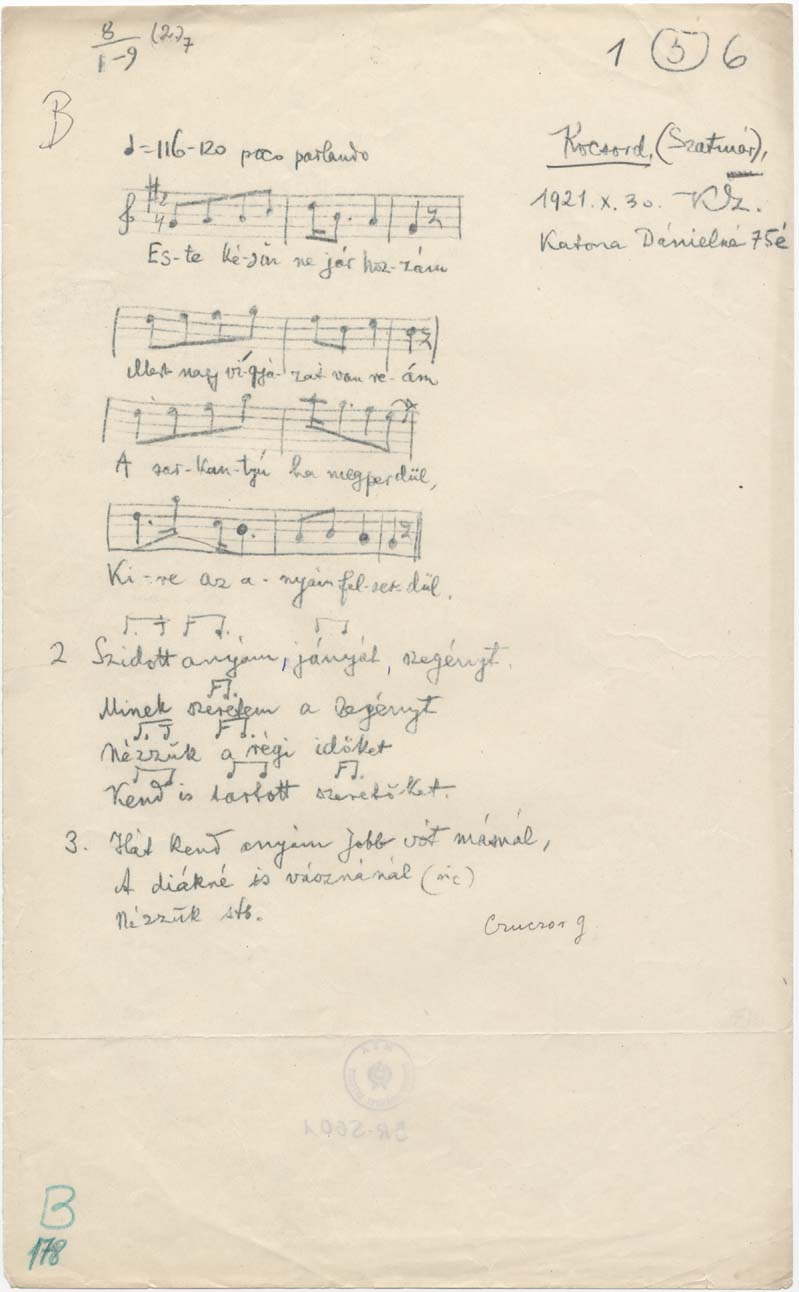 8/1-9 (2.)7
1 (5) 6
B
♩=116-120 poco parlando
Kocsord, (Szatmár),
1921. X. 30. KZ.
Katona Dánielné 75é
Es-te ké-sőn ne jár hoz-zám
Mert nagy vi-gyá-zat van re-ám
A sar-kan-tyú ha megperdül,
Ki-re az a-nyám fel-ser-dül.
2 Szidott anyám, jányát, szegényt.
Minek szeretem a legényt
Nézzük a régi időket
Kend is tartott szeretőket.
3. Hát kend anyám jobb vót másnál,
A diákné is vásznánál (sic)
Nézzük stb.
Czuczor G
BR-5601
B
178